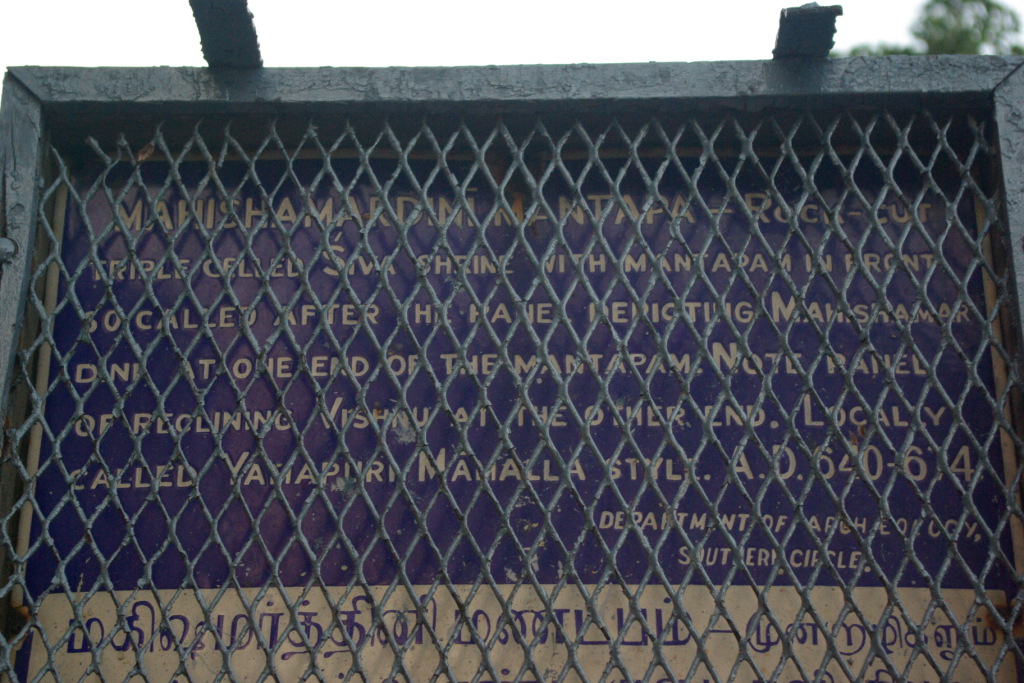 MAHISHAMARDINI MANTAPA - ROCK-CUT
TRIPLE CELLED SIVA SHRINE WITH MANTAPAM IN FRONT
SO CALLED AFTER THE PANEL DEPICTING MAHISHAMAR
DINI AT ONE END OF THE MANTAPAM. NOTE PANEL
OF RECLINING VISHNU AT THE OTHER END. LOCALLY
CALLED YAMAPURI MAMALLA STYLE. A.D. 640-674
DEPARTMENT OF ARCHAEOLOGY,
SOUTHERN CIRCLE.
மகிஷமர்த்தினி மண்டபம் - மூன்றறைகளும்